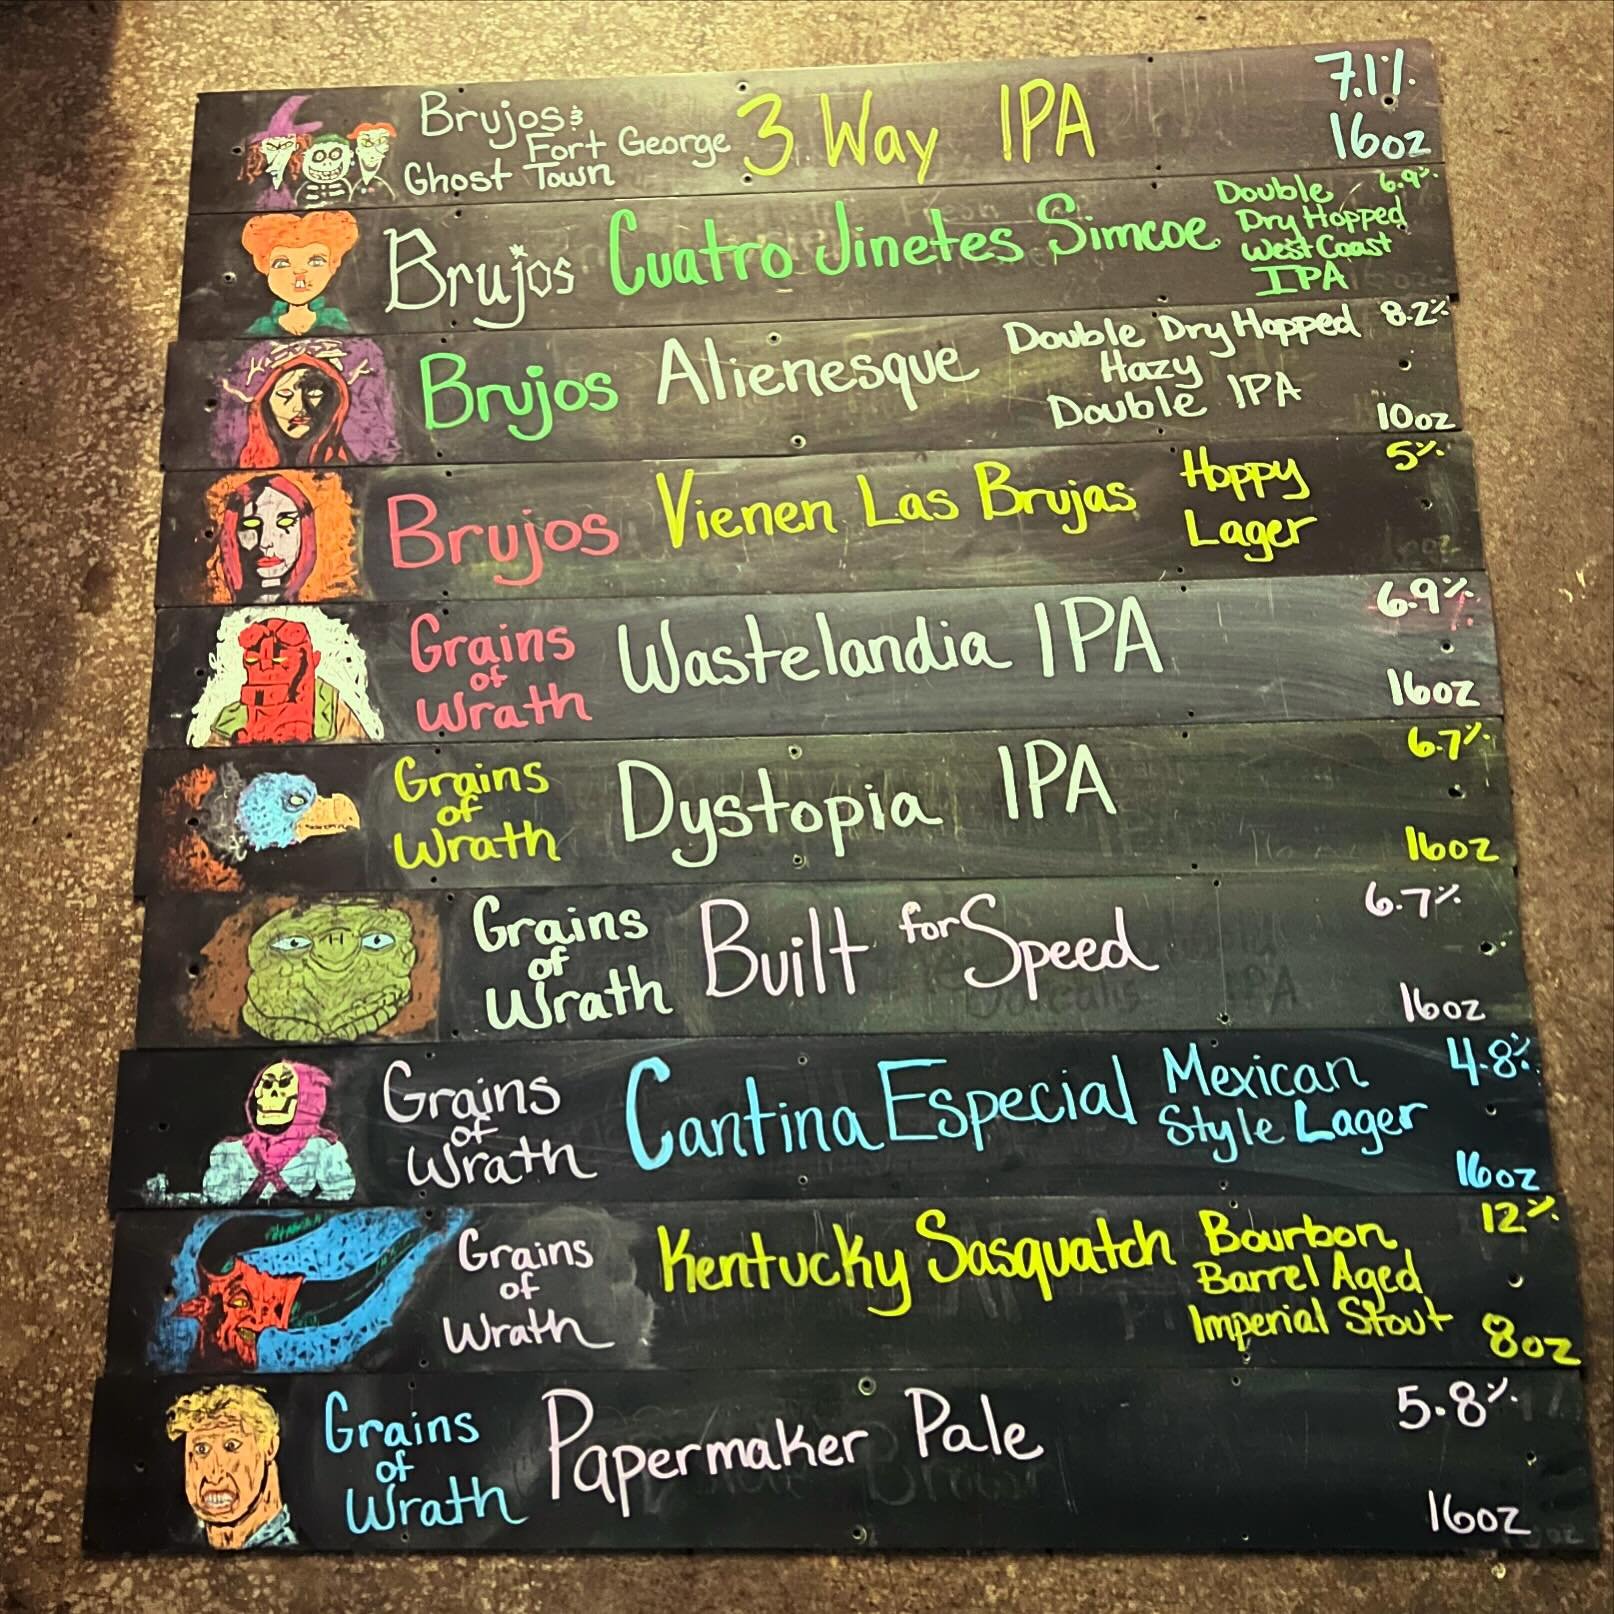 Brujos &
Fort George
Ghost Town
3 Way IPA
7.1%
16oz
Brujos
Cuatro Jinetes Simcoe
Double
Dry Hopped
West Coast
IPA
6.9%
Brujos
Alienesque
Double Dry Hopped
Hazy
Double IPA
8.2%
10oz
Brujos
Vienen Las Brujas
Hoppy
Lager
5%
Grains
of
Wrath
Wastelandia IPA
6.9%
16oz
Grains
of
Wrath
Dystopia IPA
6.7%
16oz
Grains
of
Wrath
Built for Speed
6.7%
16oz
Grains
of
Wrath
Cantina Especial
Mexican
Style Lager
4.8%
16oz
Grains
of
Wrath
Kentucky Sasquatch
Bourbon
Barrel Aged
Imperial Stout
12%
8oz
Grains
of
Wrath
Papermaker Pale
5.8%
16oz